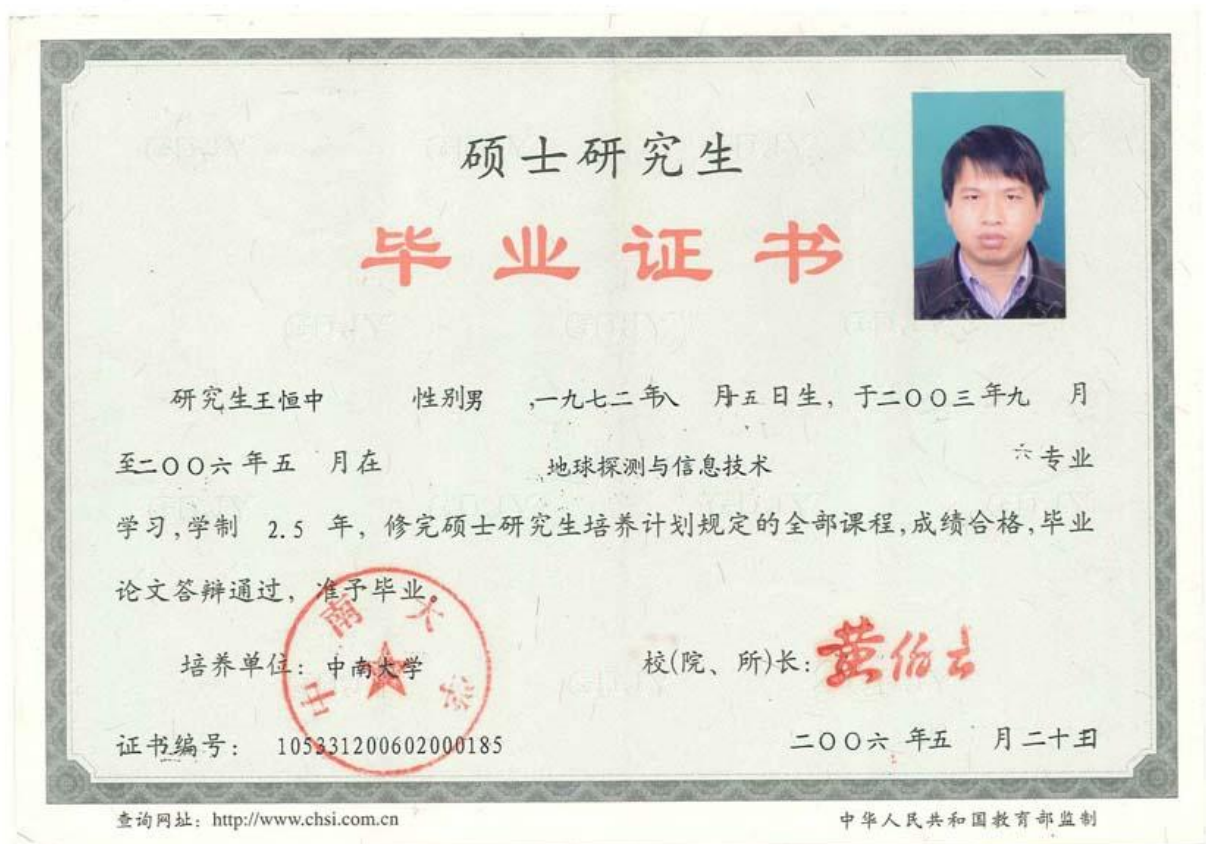 硕士研究生
毕业证书
研究生王恒中 性别男 ,一九七二年八 月五日生，于二〇〇三年九 月
至二〇〇六年五 月在 地球探测与信息技术 六专业
学习,学制 2.5 年，修完硕士研究生培养计划规定的全部课程,成绩合格,毕业
论文答辩通过，准予毕业。
培养单位：中南大学
中南大学
校(院、所)长：黄伯云
证书编号： 105331200602000185
二〇〇六年五 月二十日
查询网址：http://www.chsi.com.cn
中华人民共和国教育部监制